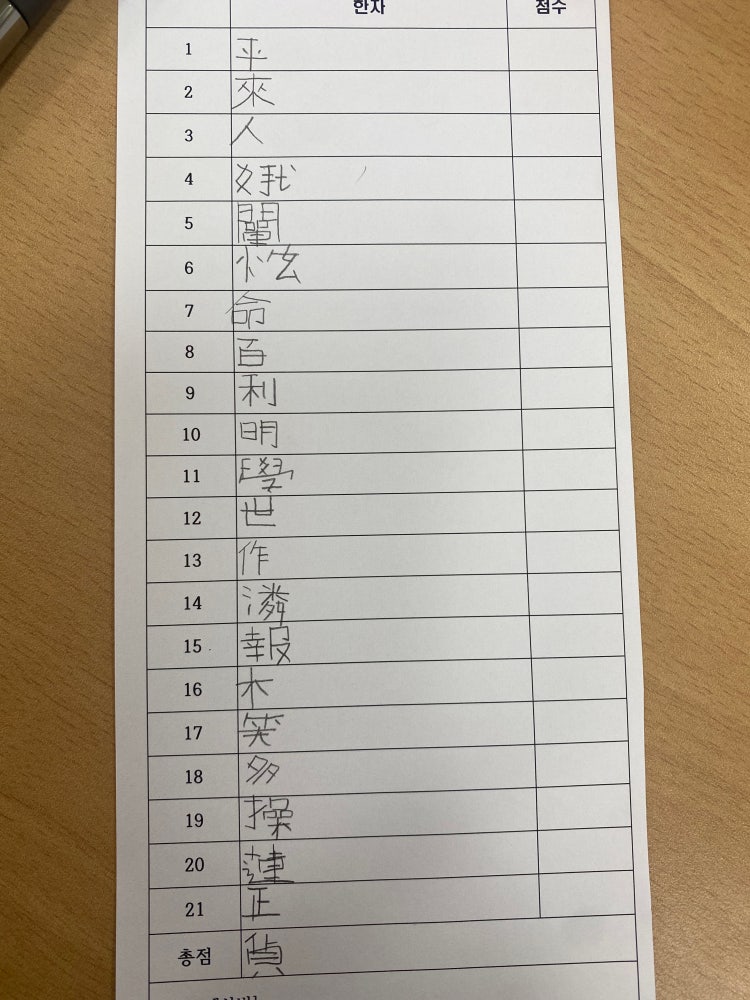 한자 점수
1 平
2 來
3 人
4 娥
5
6 怰
7 命
8 百
9 利
10 明
11 學
12 世
13 作
14 潾
15 報
16 木
17 笑
18 多
19 操
20 蓮
21 正
총점 貨